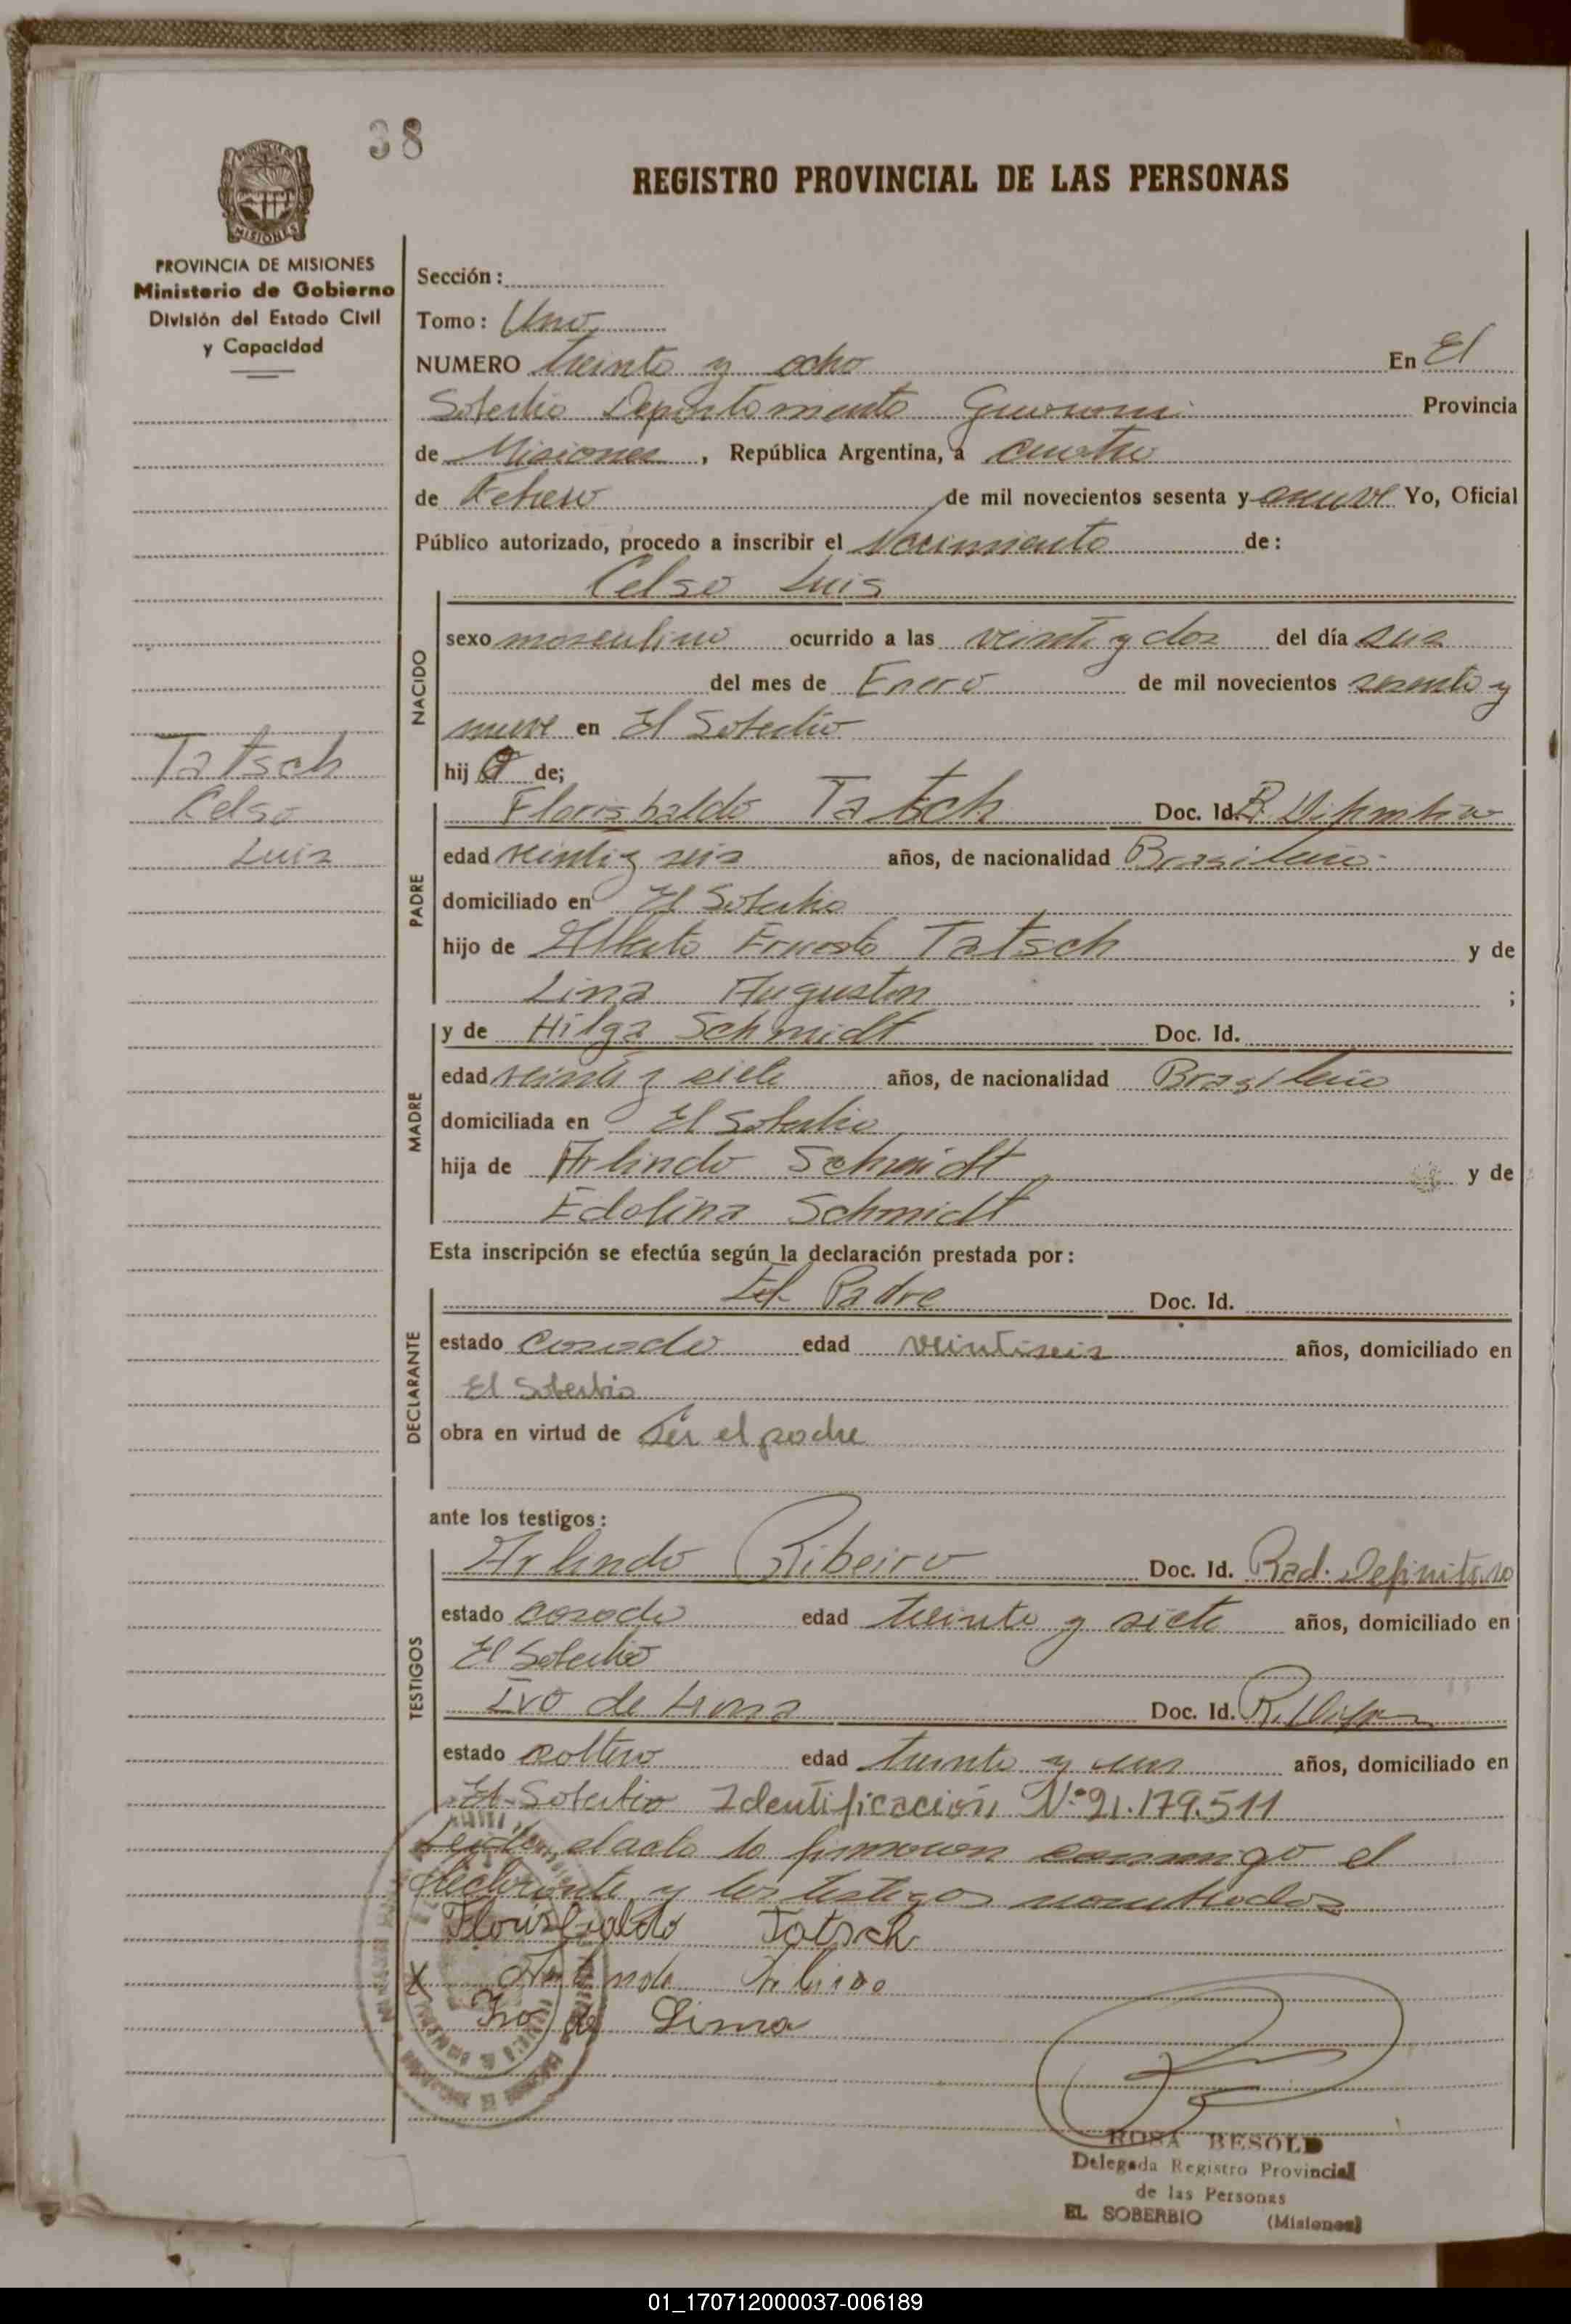 38
REGISTRO PROVINCIAL DE LAS PERSONAS
MISIONES
PROVINCIA DE MISIONES
Ministerio de Gobierno
División del Estado Civil
y Capacidad
Sección:
Tomo: Uno
NUMERO treinta y ocho En El
Soberbio Departamento Guarani Provincia
de Misiones, República Argentina, a cuatro
de Febrero de mil novecientos sesenta y nueve Yo, Oficial
Público autorizado, procedo a inscribir el Nacimiento de:
NACIDO
Celso Luis
sexo masculino ocurrido a las veinte y dos del día seis
del mes de Enero de mil novecientos sesenta y
nueve en El Soberbio
hijo de;
Tatsch
Celso
Luis
PADRE
Florisbaldo Tatsch Doc. Id. R. Definitivo
edad veinti y seis años, de nacionalidad Brasileño
domiciliado en El Soberbio
hijo de Alberto Ernesto Tatsch y de
Lina Augustin ;
MADRE
y de Hilga Schmidt Doc. Id.
edad veinti y siete años, de nacionalidad Brasileño
domiciliada en El Soberbio
hija de Arlindo Schmidt y de
Edolina Schmidt
Esta inscripción se efectúa según la declaración prestada por:
DECLARANTE
El Padre Doc. Id.
estado casado edad veintiseis años, domiciliado en
El Soberbio
obra en virtud de Ser el padre
ante los testigos:
TESTIGOS
Arlindo Ribeiro Doc. Id. Rad. Definitivo
estado casado edad treinta y siete años, domiciliado en
El Soberbio
Ivo de Lima Doc. Id.
estado soltero edad treinta y un años, domiciliado en
El Soberbio Identificación Nº 21.179.511
Leida el acta la firmaron conmigo el
declarante y los testigos nombrados
Florisbaldo Tatsch
X Arlindo Ribeiro
Ivo de Lima
ROSA BESOLD
Delegada Registro Provincial
de las Personas
EL SOBERBIO (Misiones)
01_170712000037-006189